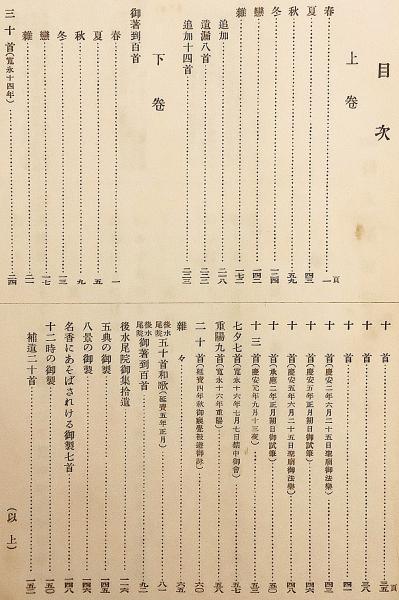 目次
上卷
春……一頁
夏……四三
秋……五九
冬……一二四
戀……一四二
雜……一七二
追加……二一八
遺漏八首……二二三
追加十四首……二三三
下卷
御著到百首
春……一
夏……五
秋……九
冬……一三
戀……一七
雜……二一
三十首(寬永十四年)……二四
十首……三五頁
十首……三八
十首……四一
十首(慶安二年六月二十五日聖廟御法樂)……四三
十首(慶安五年正月朔日御試筆)……四六
十首(慶安五年六月二十五日聖廟御法樂)……四八
十首(承應二年正月朔日御試筆)……五〇
十三首(慶安元年九月十三夜)……五三
七夕七首(寬永十六年七月七日禁中御會)……五七
重陽九首(寬永十六年重陽)……五八
二十首(延寶四年秋御寢覺被遊御詠)……六〇
雜々……六五
後水尾院五十首和歌(延寶五年正月)……八一
後水尾院御著到百首……九二
後水尾院御集拾遺……一二六
五典の御製……一四五
八景の御製……一四六
名香にあそばされける御製七首……一四八
十二時の御製……一五〇
補遺二十首……一五一
(以上)